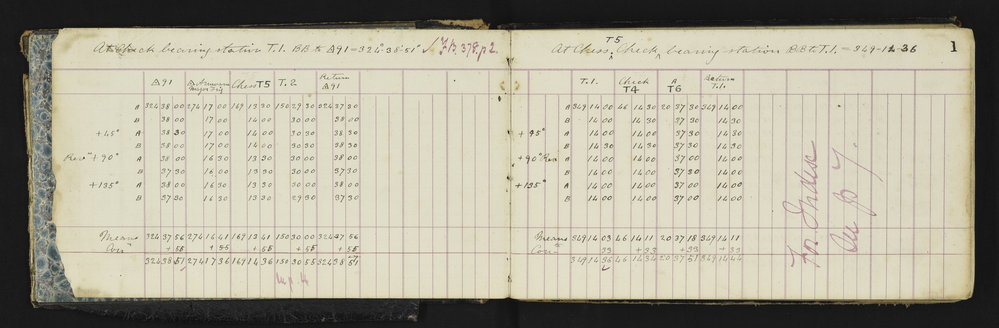 At Check bearing station T.1. BB to Δ91 = 324° 38' 51" √ FB 378, p2.
Δ91 Chess T5 T.2 Return Δ91
A 324 38 00 274 17 00 169 13 30 150 29 30 324 37 30
B 38 00 17 00 14 00 30 00 38 00
+45° A 38 30 17 00 14 00 30 30 38 30
B 38 00 17 00 14 00 30 30 38 30
+90° A 38 00 16 30 13 30 30 00 38 00
B 37 30 16 00 13 30 30 00 37 30
+135° A 38 00 16 30 13 30 30 00 38 00
B 37 30 16 30 13 30 29 30 37 30
Means 324 37 56 274 16 41 169 13 41 150 30 00 324 37 56
Corrn +55 +55 +55 +55 +55
324 38 51 274 17 36 169 14 36 150 30 55 324 38 51
T5
At Chess, Check, bearing station BB to T.1. = 349-14-36
1
T.1. Check T4 Δ T6 Return T.1.
A 349 14 00 46 14 30 20 37 30 349 14 00
B 14 00 14 30 37 30 14 30
+45° A 14 00 14 00 37 30 14 30
B 14 30 14 30 37 30 14 30
+90° Rev A 14 00 14 00 37 00 14 00
B 14 00 14 00 37 30 14 00
+135° A 14 00 14 00 37 00 14 00
B 14 00 14 00 37 00 14 00
Means 349 14 03 46 14 11 20 37 18 349 14 11
Corrn 33 +33 +33 +33
349 14 36 46 14 34 20 37 51 349 14 44
For Index
see p 7.